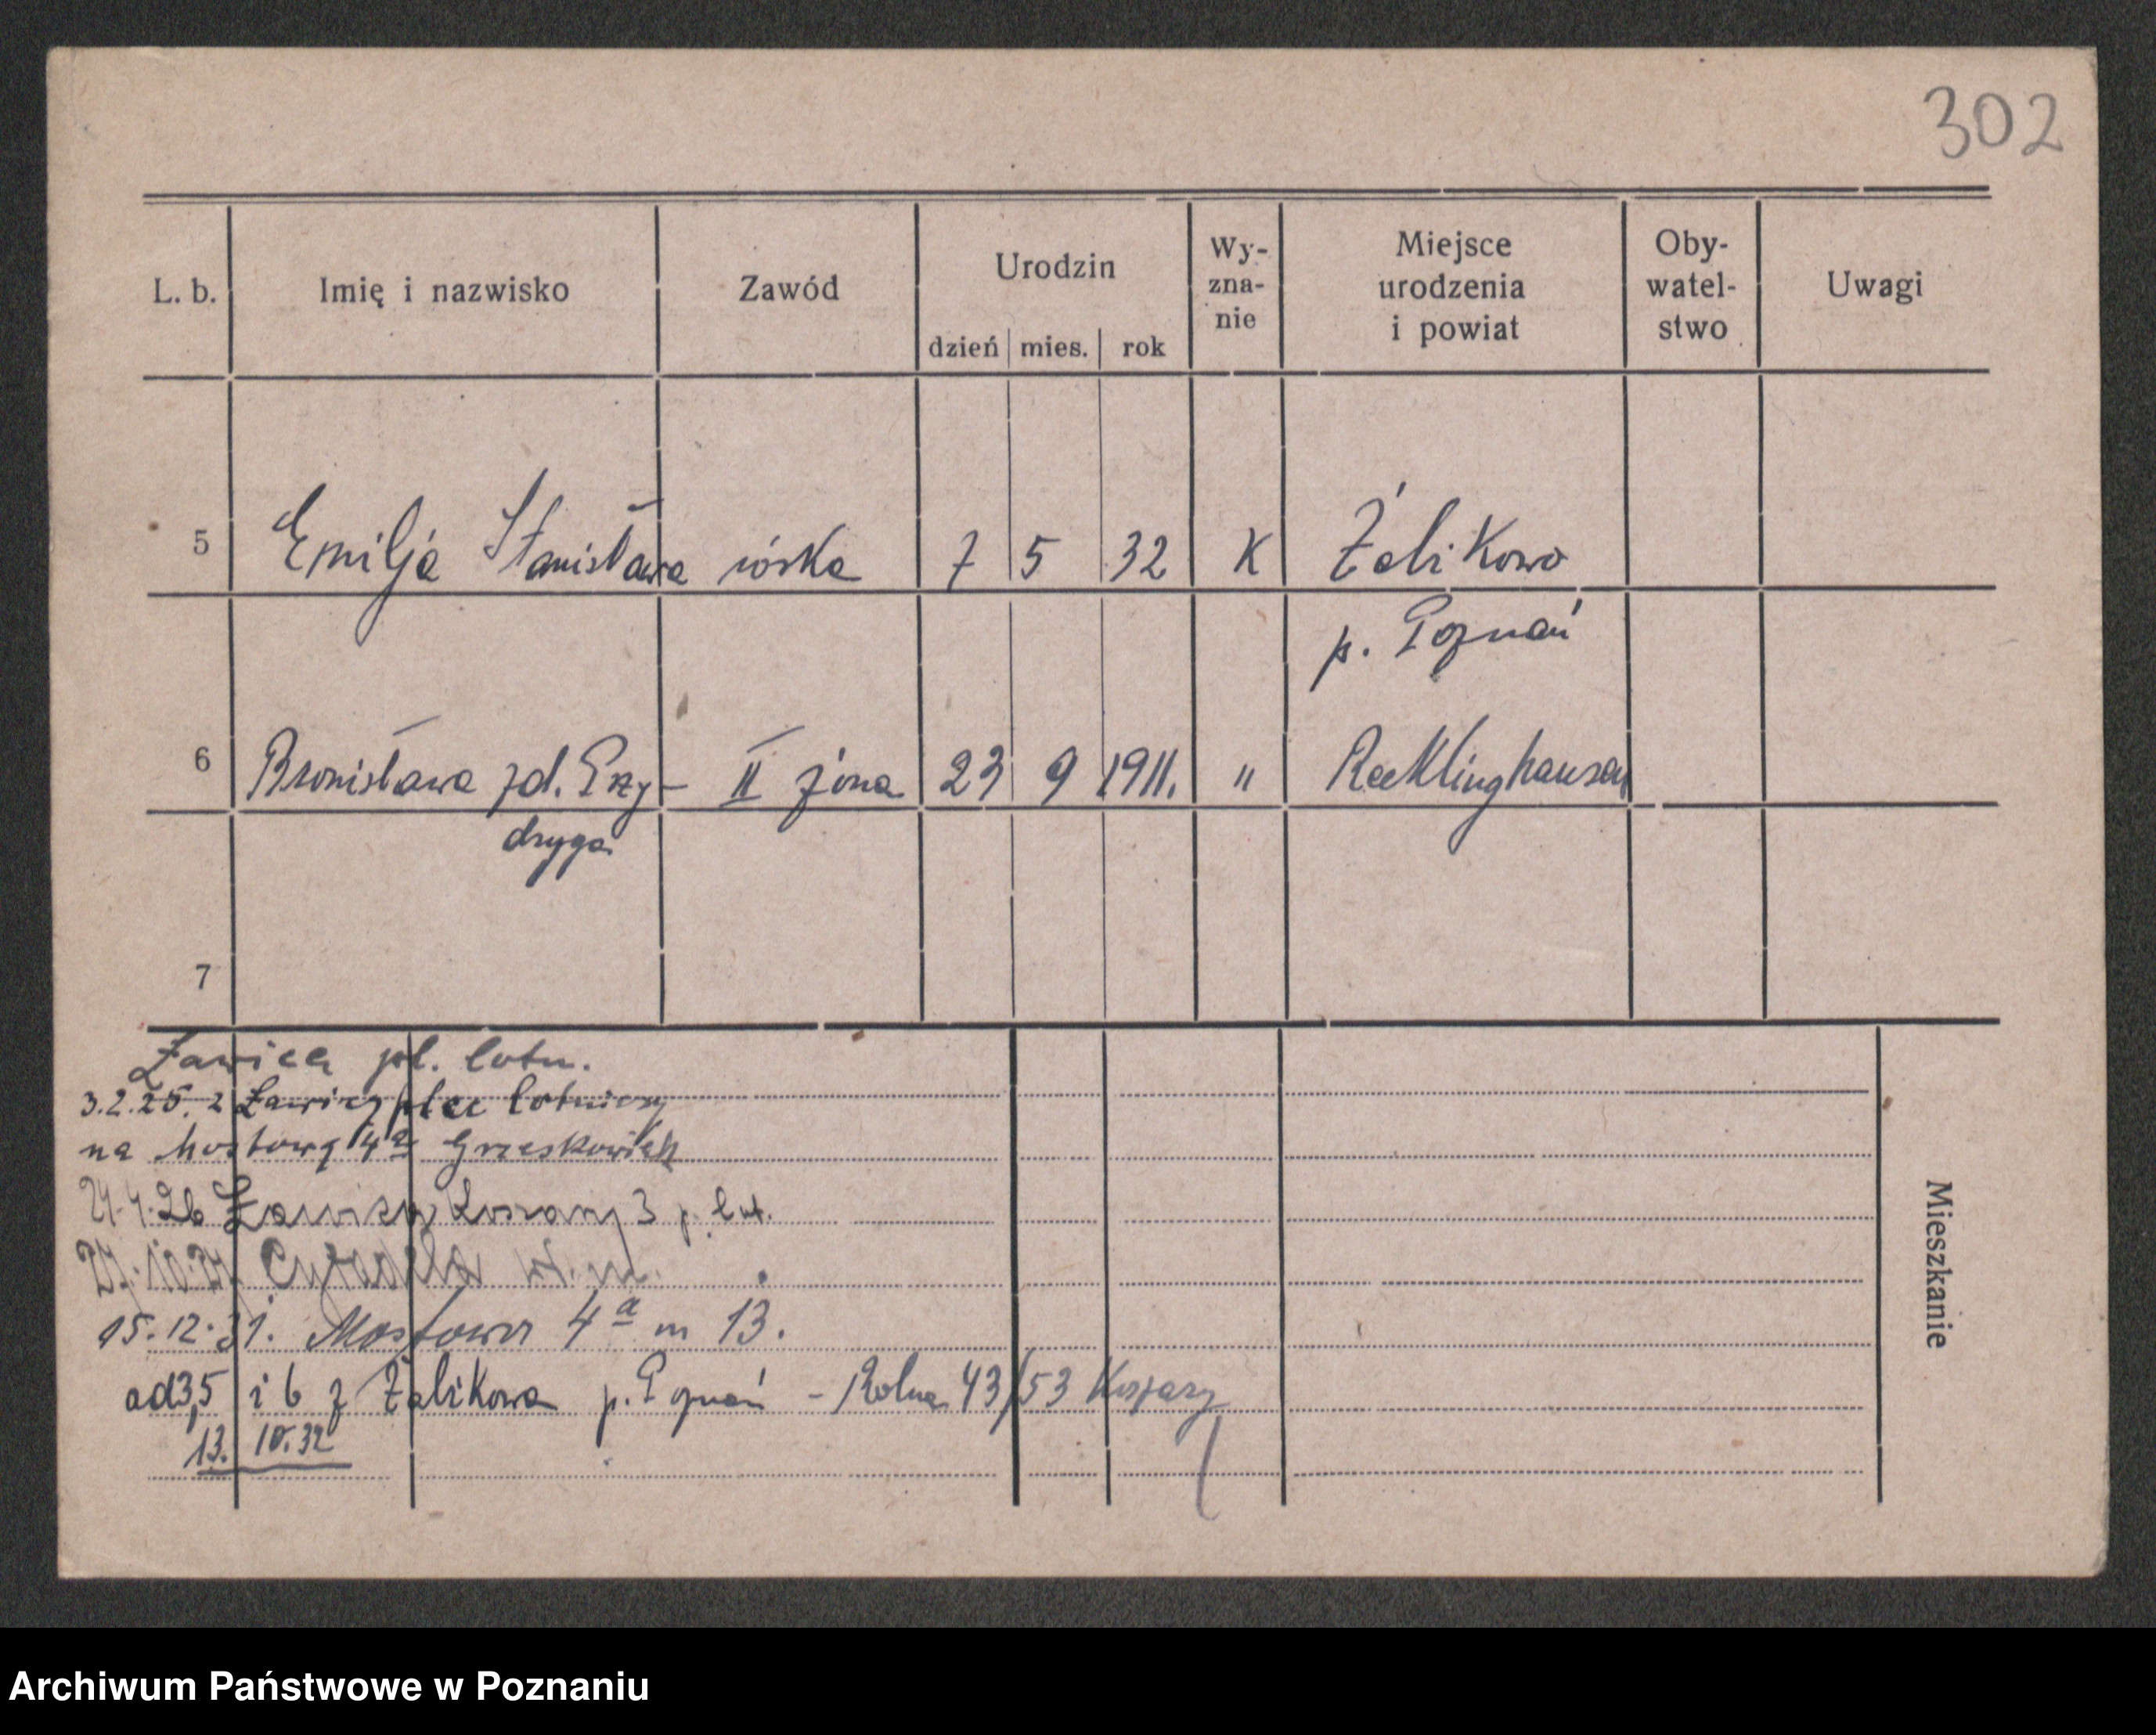 302
L. b.
Imię i nazwisko
Zawód
Urodzin
dzień mies. rok
Wy-
zna-
nie
Miejsce
urodzenia
i powiat
Oby-
watel-
stwo
Uwagi
5 Emilja Stanisława córka 7 5 32 K Żabikowo
p. Poznań
6 Bronisława zd. Przy- II żona 23 9 1911. " Recklinghausen
dryga
7
Ławica pl. lotn.
3.2.25. z Ławicy plac lotniczy
na Mostową 4a Grześkowiak
21.4.26 Ławica Koszary 3 p. lot.
Cytadela
15.12.31. Mostowa 4a m 13.
ad 3,5 i 6 z Żabikowa p. Poznań - Rolna 43/53 Koszary
13. 10. 32
Mieszkanie
Archiwum Państwowe w Poznaniu